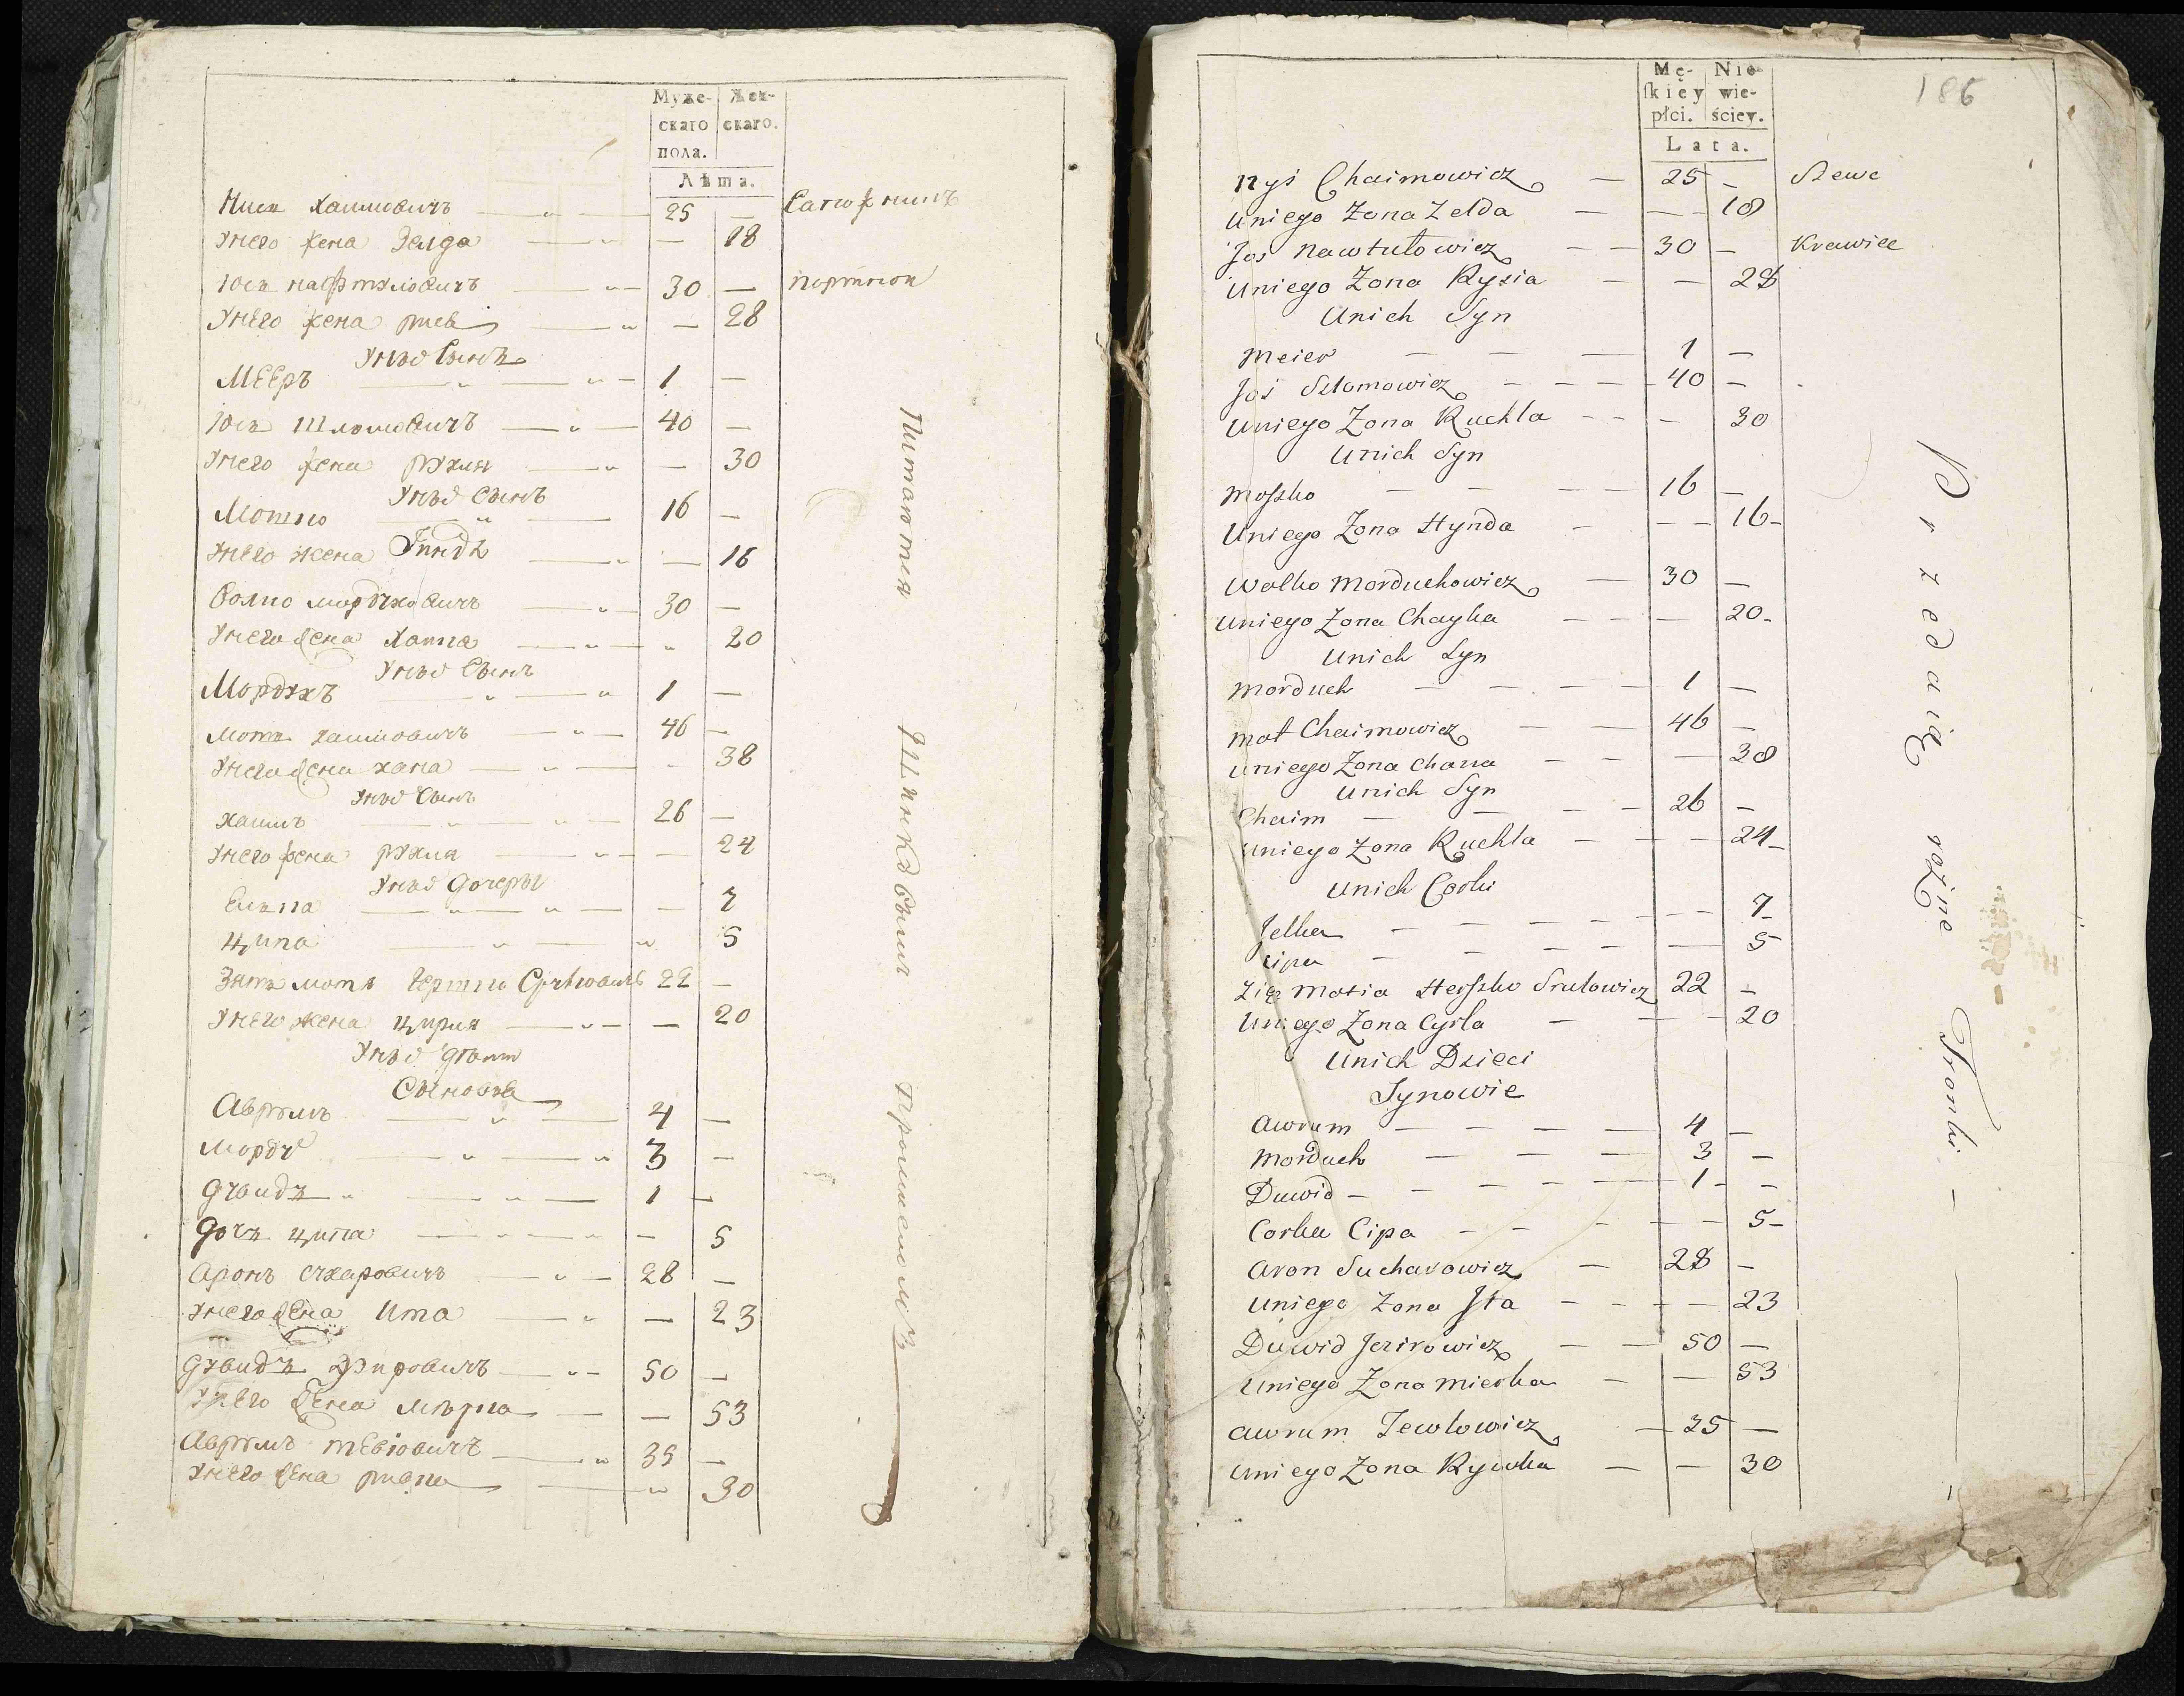 Муже- Жен-
скаго скаго.
пола.
Лѣта.
Нисн Хаимовичъ — 25 — Сапожникъ
Унего жена Зелда — — 18
Юсь нафтуловичъ — 30 — портнои
Унего жена — — 28
Унихъ Сынъ
Мееръ — 1 —
Юсь Шломовичъ — 40 —
Унего жена рухля — — 30
Унихъ Сынъ
Мошко — 16 —
Унего жена Гинда — — 16
Волко мордуховичъ — 30 —
Унего жена Хаика — „ 20
Унихъ Сынъ
Мордухъ — 1 —
Моть хаимовичъ — 46 —
Унего жена хана — — 38
Унихъ Сынъ
хаимъ — 26 —
Унего жена рухля — — 24
Унихъ Дочеры
Елька — — 7
Ципа — 5
Зять моть Гершко Срулювичъ 22 —
Унего жена цирля — — 20
Унихъ дѣти
Сыновья
Аврумъ — 4 —
Мордух — 3 —
Дувидъ — 1 —
Дочь ципа — — 5
Аронъ сухаровичъ — 28 —
Унего жена Ита — — 23
Дувидъ — 50 —
Унего жена Мѣрка — — 53
Аврумъ тевіовичъ — 35 —
Унего жена ривка — 30
Питаются Шинковымъ промысломъ
186
Mę- Nie-
ſkiey wie-
płci. ściey.
Lata.
Nyś Chaimowicz — 25 — Szewc
Uniego Zona Zelda — — 18
Joś Nawtulowicz — — 30 — Krawiec
Uniego Zona Rysia — — 28
Unich Syn
Meier — — — 1 —
Joś Szlomowicz — — — 40 —
Uniego Zona Ruchla — — — 30
Unich Syn
Moſzko — — — — 16 —
Uniego Zona Hynda — — — 16 -
Wolko Morduchowicz — 30 —
Uniego Zona Chayka — — — 20 -
Unich Syn
Morduch — — — — 1 —
Mot Chaimowicz — — 46 —
Uniego Zona Chana — — — 38
Unich Syn
Chaim — — — — 26 —
Uniego Zona Ruchla — — — 24 -
Unich Corki
Jelka — — — — — — — 7 -
Cipa — — — — — — 5
Zięć Motia Herſzko Srulowicz 22 —
Uniego Zona Cyrla — — — 20
Unich Dzieci
Synowie
Awrum — — — — 4 —
Morduch — — — 3 —
Duwid — — — — — 1 - —
Corka Cipa — — — — — 5 -
Aron Sucharowicz — 28 —
Uniego Zona Jta — — — — 23
Duwid — — 50 —
Uniego Zona Mierka — — 53
Awrum Tewlowicz — 35 —
Uniego Zona Rywka — — 30
Przedaią rożne Tronki —